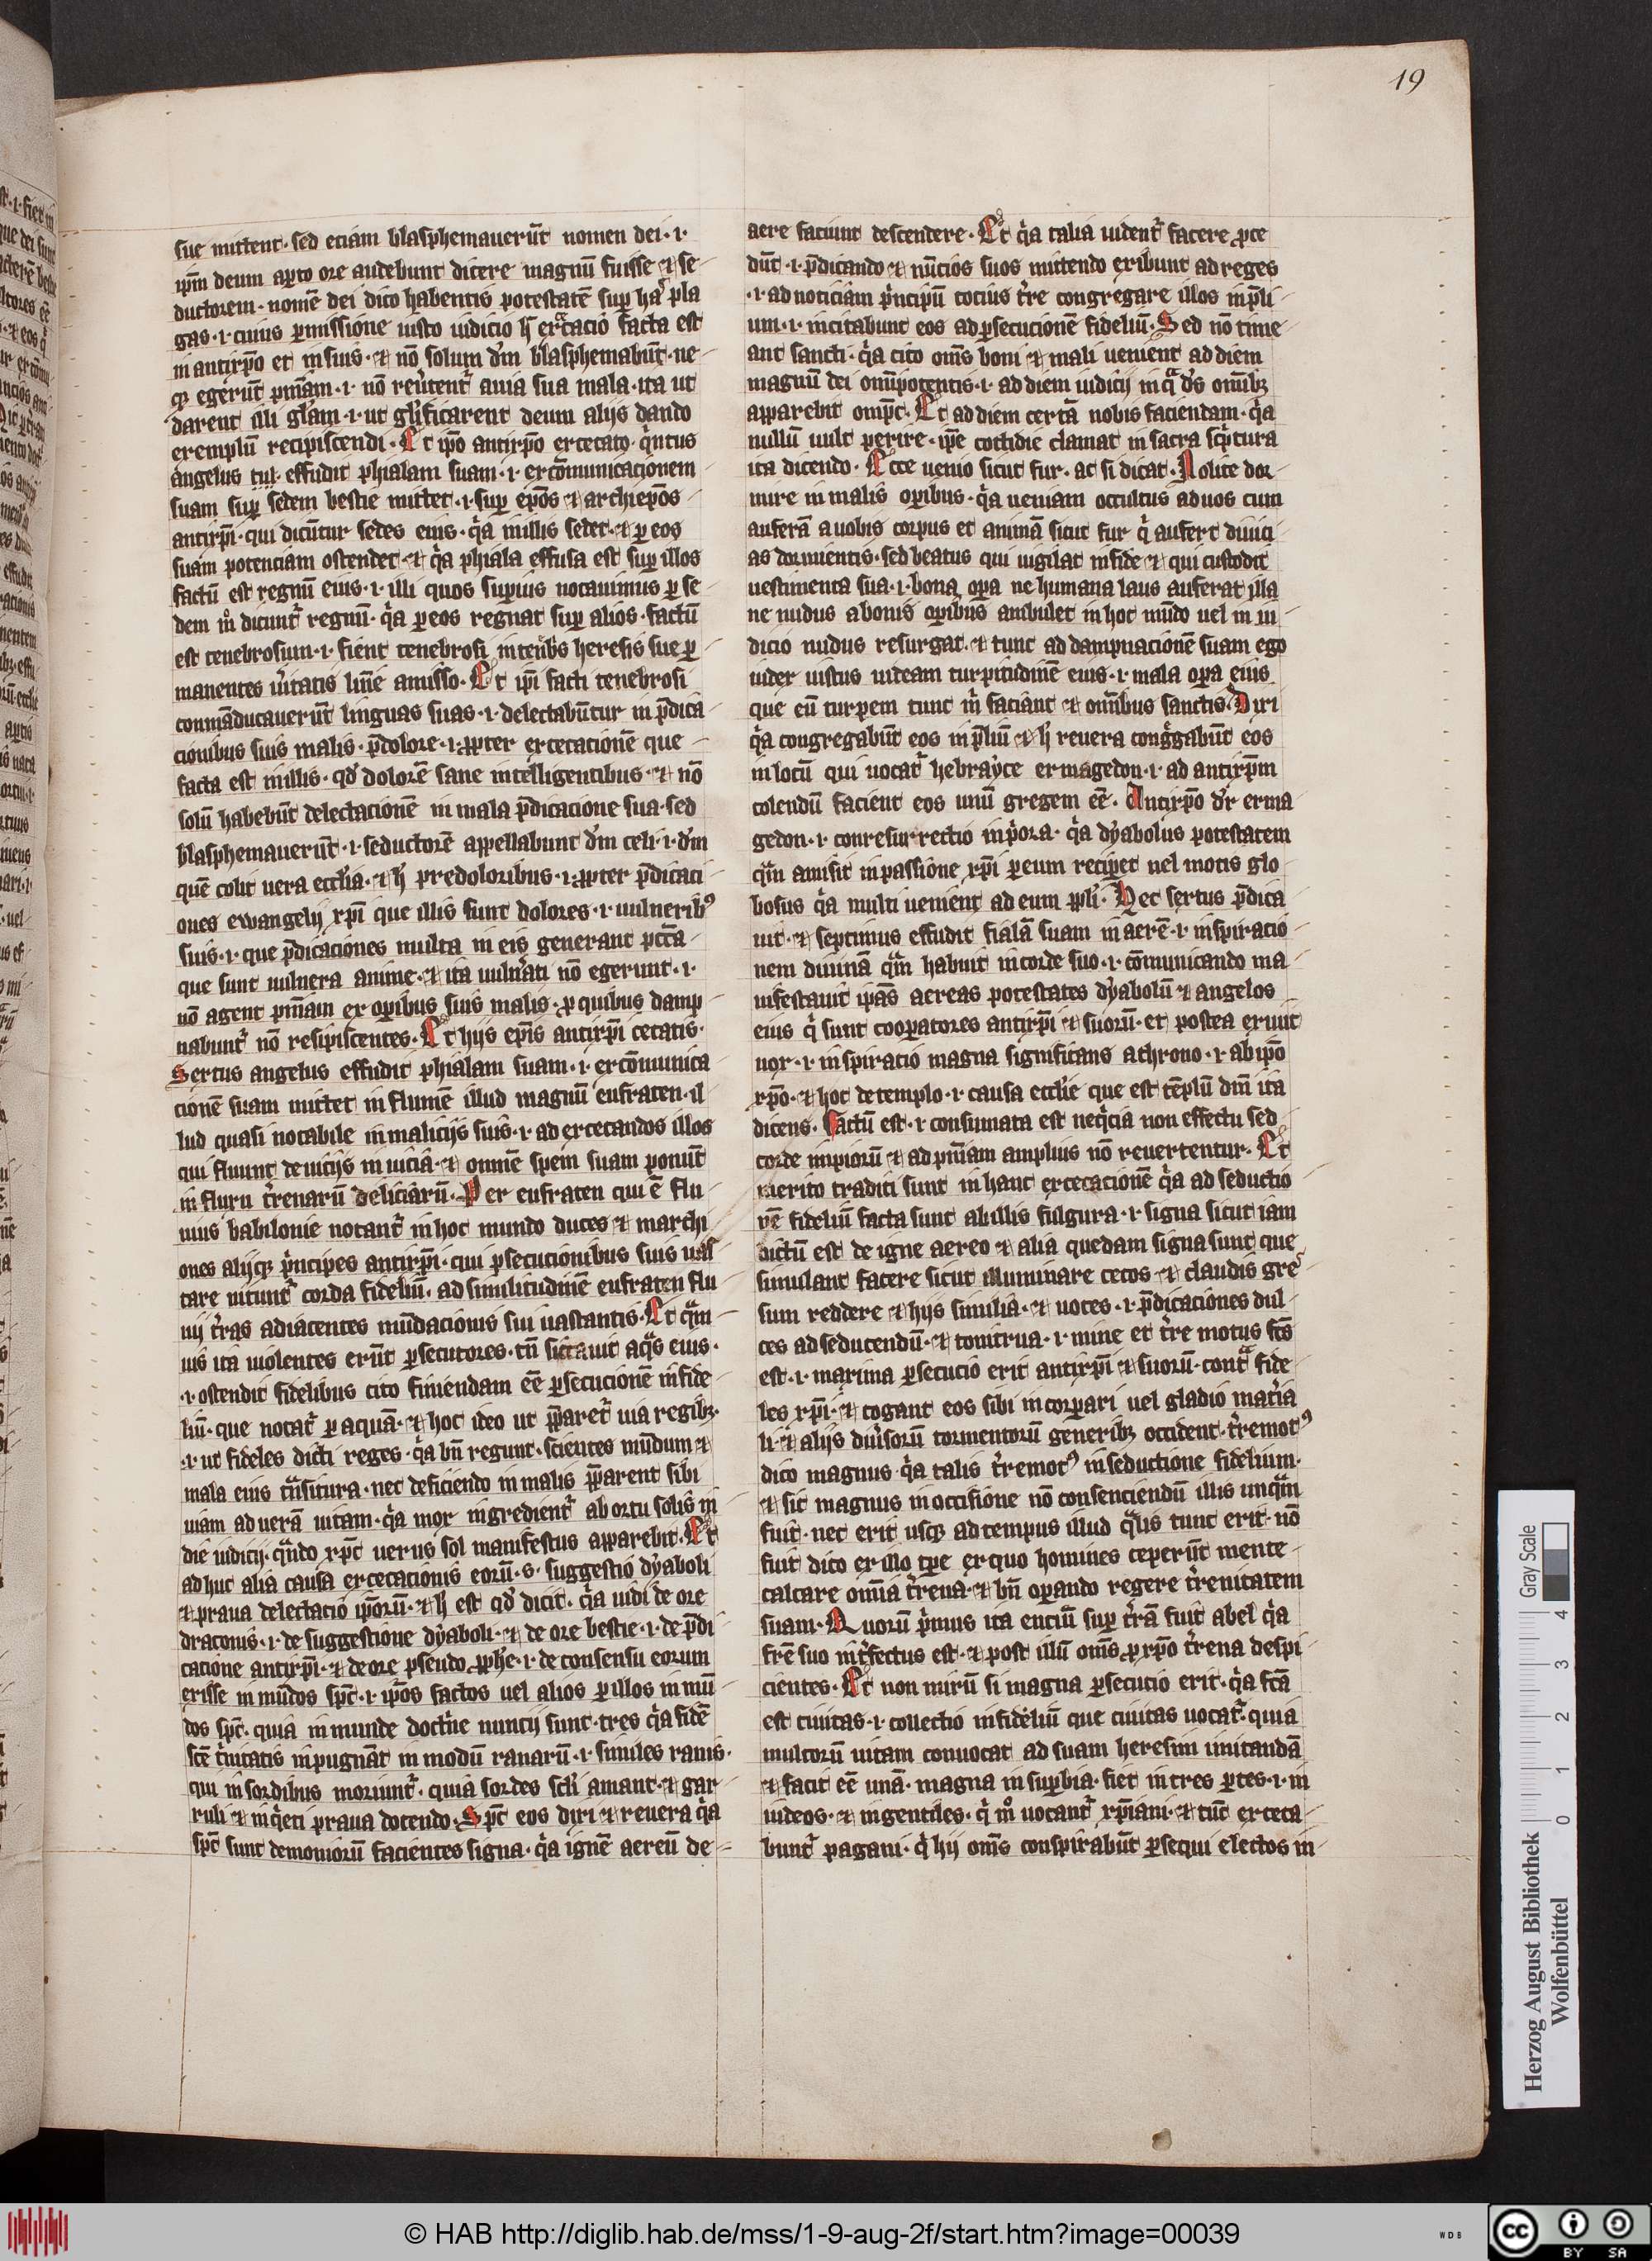 19
sue mittent · sed eciam blasphemauerūt nomen dei · i ·
ip̄m deum aꝑto ore audebunt dicere magnū fuisse ⁊ se-
ductorem · nomē dei dico habentis potestatē suꝑ has pla
gas · i · cuius ꝑmissione iusto iudicio hec excecacio facta est
in antixp̄o et in suis · ⁊ nō solum dm̄ blasphemabūt · ne-
qꝫ egerūt pnīam · i · nō reuertentur a uia sua mala · ita ut
darent illi glām · i · ut glificarent deum alijs dando
exemplū recipiscendi · Et ip̄o antixp̄o excecato · quintus
angelus effudit phialam suam · i · excōmunicacionem
suam suꝑ sedem bestie mittet · i · suꝑ ep̄os ⁊ archiep̄os
antixp̄i · qui dicūtur sedes eius · qa in illis sedet · ⁊ ꝑ eos
suam potenciam ostendet · ⁊ qa phiala effusa est suꝑ illos
factū est regnū eius · i · illi quos suꝑius notauimus ꝑ se
dem mo dicuntur regnū · qa ꝑ eos regnat suꝑ alios · factū
est tenebrosum · i · fient tenebrosi in tenebris heresis sue ꝑ-
manentes ueritatis lumine amisso · Et ip̄i facti tenebrosi
conmāducauerūt linguas suas · i · delectabūtur in p̄dica
cionibus suis malis · p̄ dolore · i · ꝓpter excecacionē que
facta est in illis · qd dolorē sane intelligentibus · ⁊ nō
solū habebūt delectacionē in mala p̄dicacione sua · sed
blasphemauerūt · i · seductorē appellabunt dm̄ celi · i · dm̄
quē colit uera eccl̄ia · ⁊ hec pre doloribus · i · ꝓpter p̄dicaci
ones ewangelij xp̄i que illis sunt dolores · i · uulneribꝰ
suis · i · que p̄dicaciones multa in eis generant pctā
que sunt uulnera anime · ⁊ ita uulnerati nō egerunt · i ·
nō agent pnīam ex oꝑibus suis malis · ꝓ quibus damp-
nabuntur nō resipiscentes · Et hijs ep̄is antixp̄i cecatis ·
Sextus angelus effudit phialam suam · i · excōmunica
cionē suam mittet in flumē illud magnū eufraten · il
lud quasi notabile in malicijs suis · i · ad excecandos illos
qui fluunt de uicijs in uicia · ⁊ omnē spem suam ponūt
in fluxu terrenarū deliciarū · Per eufraten qui ē flu-
uius babilonie notantur in hoc mundo duces ⁊ marchi
ones alijqꝫ principes antixp̄i · qui ꝑsecucionibus suis uas
tare nituntur corda fidelium · ad similitudinē eufraten flu
uij terras adiacentes inūdacionis sui uastantis · Et quam
uis ita uiolentes erūt ꝑsecutores · tn̄ siccauit aquas eius ·
· i · ostendit fidelibus cito finiendam eē ꝑsecucionē infide
lium · que notatur ꝑ aquā · ⁊ hoc ideo ut p̄paretur uia regibꝫ ·
· i · ut fideles dicti reges · qa bn̄ regunt · scientes mūdum ⁊
mala eius transitura · nec deficiendo in malis p̄parent sibi
uiam ad uerā uitam · qa mox ingredientur ab ortu solis in
die iudicij · quando xp̄c uerus sol manifestus apparebit · Et
ad huc alia causa excecacionis eorū · s · suggestio dyaboli
⁊ praua delectacio ip̄orū · ⁊ hec est qd dicit · qa uidi de ore
draconis · i · de suggestione dyaboli · ⁊ de ore bestie · i · de p̄di
cacione antixp̄i · ⁊ de ore pseudo ꝓphe · i · de consensu eorum
exisse inmūdos spc̄ · i · ip̄os factos uel alios ꝑ illos inmū
dos spc̄ · quia inmunde doctrine nuncij sunt · tres qa fidē
scē trinitatis inpugnāt in modū ranarū · i · similes ranis ·
qui in sordibus moriuntur · quia sordes scli amant · ⁊ gar
ruli ⁊ inqeti praua docendo · Spc̄ eos dixi ⁊ reuera qa
spc̄ sunt demoniorū facientes signa · qa ignē aereū de-
aere faciunt descendere · Et qa talia uidentur facere ꝓce
dūt · i · p̄dicando ⁊ nūcios suos mittendo exibunt ad reges
· i · ad noticiam principū tocius terre congregare illos in p̄li
um · i · incitabunt eos ad ꝑsecucionē fidelium · Sed nō time
ant sancti · qa cito om̄s boni ⁊ mali uenient ad diem
magnū dei om̄ipotentis · i · ad diem iudicij in qua ds om̄ibꝫ
apparebit omp̄c · Et ad diem certā nobis faciendam · qa
nullū uult perire · ip̄e cothidie clamat in sacra scriptura
ita dicendo · Ecce uenio sicut fur · ac si dicat · Nolite dor-
mire in malis oꝑibus · qa ueniam occultus ad uos cum
auferā a uobis corpus et animā sicut fur qi aufert diuici
as dormientis · sed beatus qui uigilat in fide ⁊ qui custodit
uestimenta sua · i · bona oꝑa ne humana laus auferat illa
ne nudus a bonis oꝑibus ambulet in hoc mūdo uel in iu
dicio nudus resurgat · ⁊ tunc ad dampnacionē suam ego
iudex iustus uideam turpitudinē eius · i · mala oꝑa eius
que eū turpem tunc mi faciant ⁊ omnibus sanctis · Dixi
qa congregabūt eos in p̄lium ⁊ hi reuera congregabūt eos
in locū qui uocatur hebrayce ermagedon · i · ad antixp̄m
colendū facient eos unū gregem eē · Antixp̄o dr erma
gedon · i · conresurrectio in priora · qa dyabolus potestatem
quam amisit in passione xp̄i ꝑ eum recipiet uel motis glo
bosus qa multi uenient ad eum ppli · Hec sextus p̄dica
uit · ⁊ septimus effudit fialā suam in aerē · i · inspiracio
nem diuinā quam habuit in corde suo · i · cōmunicando ma
nifestauit ip̄as aereas potestates dyabolū ⁊ angelos
eius qi sunt cooꝑatores antixp̄i ⁊ suorū · et postea exiuit
uox · i · inspiracio magna significans a throno · i · ab ip̄o
xp̄o · ⁊ hoc de templo · i · causa ecclie que est tēplū dn̄i ita
dicens · Factū est · i · consumata est neqicia non effectu sed
corde impiorū ⁊ ad pnīam amplius nō reuertentur · Et
merito traditi sunt in hanc excecacionē qa ad seductio
nē fidelium facta sunt ab illis fulgura · i · signa sicut iam
dictū est de igne aereo ⁊ alia quedam signa sunt que
simulant facere sicut illuminare cecos ⁊ claudis gres
sum reddere ⁊ hijs similia · ⁊ uoces · i · p̄dicaciones dul-
ces ad seducendū · ⁊ tonitrua · i · mine et terre motus fcs
est · i · maxima ꝑsecucio erit antixp̄i ⁊ suorū · contra fide
les xp̄i · ⁊ cogant eos sibi incorꝑari uel gladio materia
li · ⁊ alijs diuersorū tormentorū generibꝫ occident · terremotꝰ
dico magnus qa talis terremotꝰ in seductione fidelium ·
⁊ sic magnus in occisione nō consenciendū illis unquam
fuit · nec erit usqꝫ ad tempus illud qualis tunc erit · nō
fuit dico ex illo tꝑe ex quo homines ceperūt mente
calcare omia terrena · ⁊ bn̄ oꝑando regere terrenitatem
suam · Quorū primus ita enciū suꝑ terrā fuit abel qa
a fr̄e suo interfectus est · ⁊ post illū om̄s ꝓ xp̄o terrena despi
cientes · Et non mirū si magna ꝑsecucio erit · qa fcā
est ciuitas · i · collectio infidelium que ciuitas uocatur · quia
multorū uitam conuocat ad suam heresim imitandā
⁊ facit eē unā · magna in suꝑbia · fiet in tres ꝑtes · i · in
iudeos · ⁊ in gentiles · qi mo uocantur xp̄iani · ⁊ tūc exceca-
buntur pagani · qi hij om̄s conspirabūt ꝑsequi electos in
Herzog August Bibliothek
Wolfenbüttel
0 1 2 3 4
Gray Scale
© HAB http://diglib.hab.de/mss/1-9-aug-2f/start.htm?image=00039
WDB
cc
BY SA